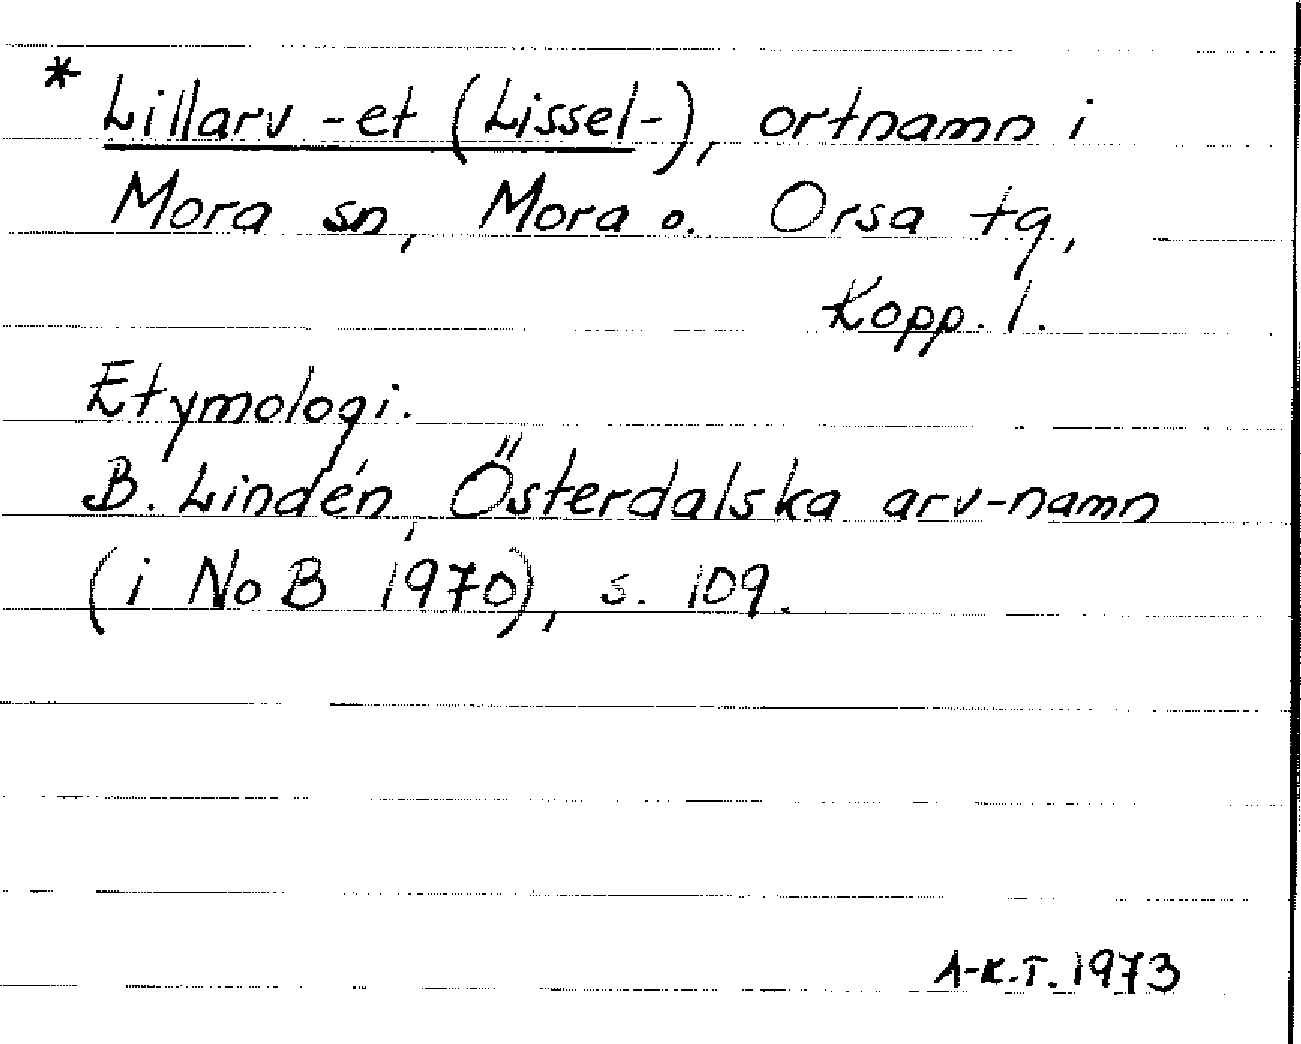 * Lillarv -et (Lissel-), ortnamn i
Mora sn, Mora o. Orsa tg,
Kopp. l.
Etymologi.
B. Lindén, Österdalska arv-namn
(i NoB 1970), s. 109.
A-K.T. 1973